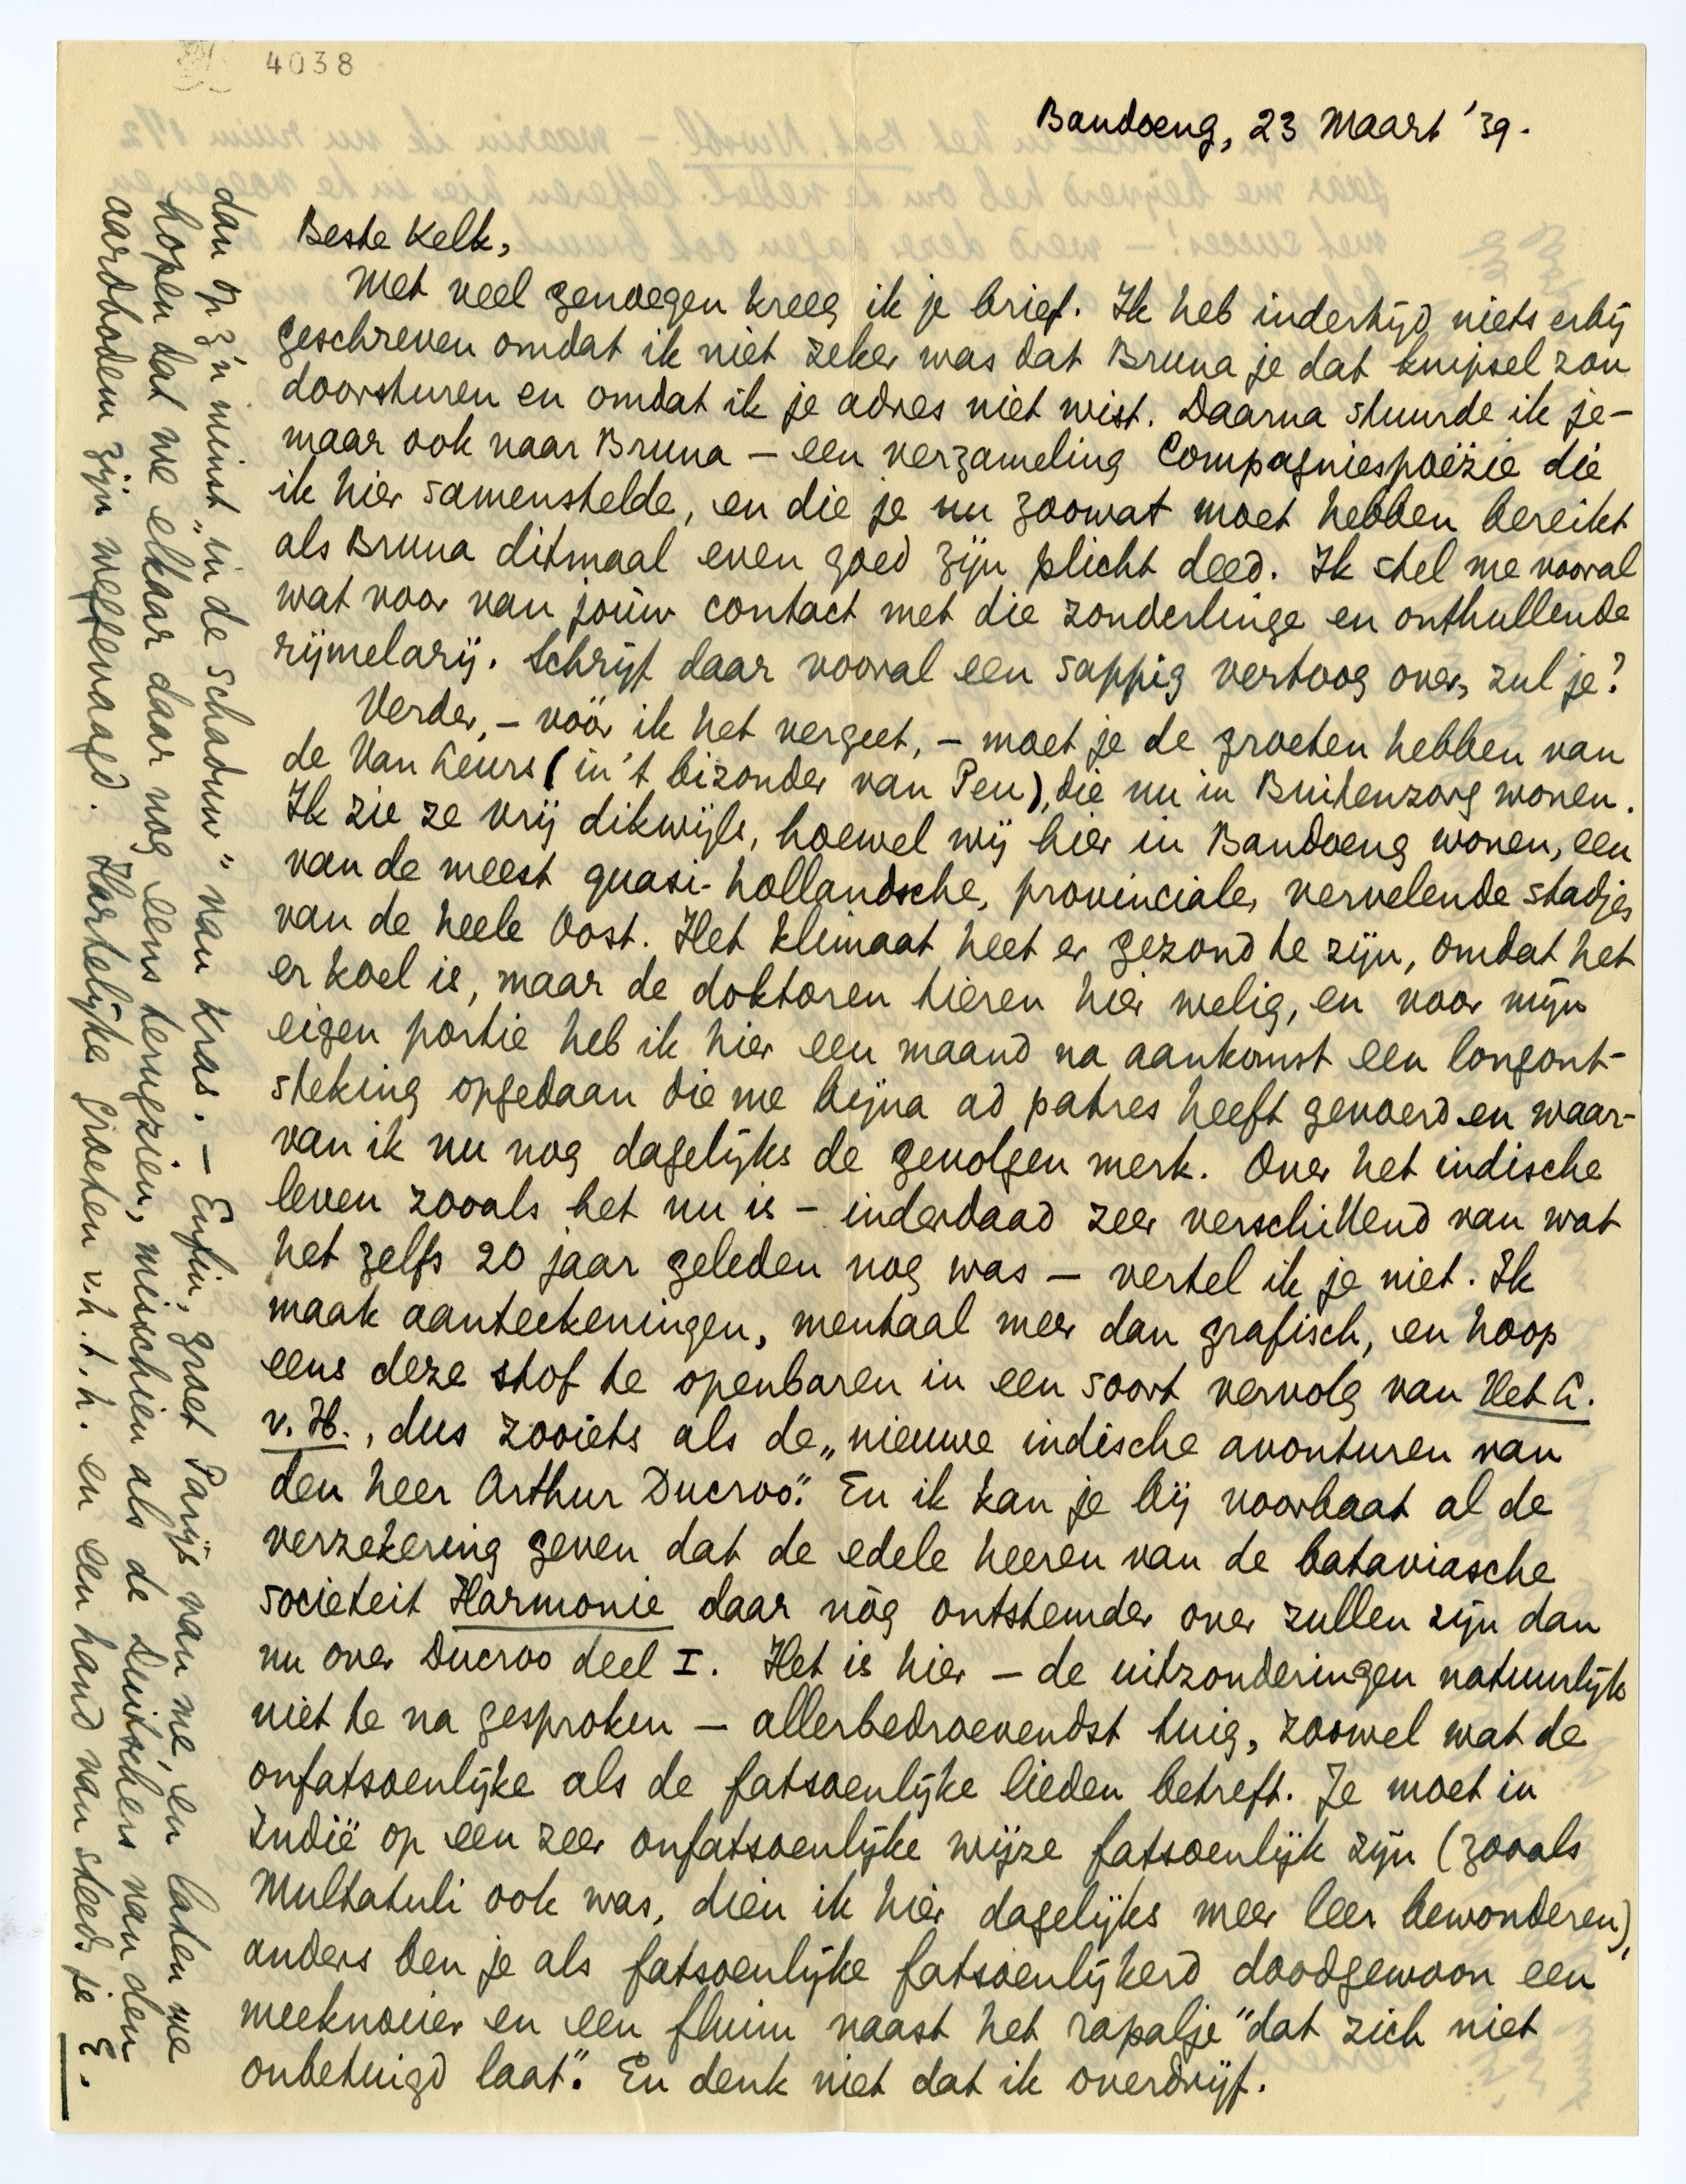 4038
Bandoeng, 23 Maart '39.
Beste Kelk,
Met veel genoegen kreeg ik je brief. Ik heb indertijd niets erbij
geschreven omdat ik niet zeker was dat Bruna je dat knipsel zou
doorsturen en omdat ik je adres niet wist. Daarna stuurde ik je –
maar ook naar Bruna – een verzameling Compagniespoëzie die
ik hier samenstelde, en die je nu zoowat moet hebben bereikt
als Bruna ditmaal even goed zijn plicht deed. Ik stel me vooral
wat voor van jouw contact met die zonderlinge en onthullende
rijmelarij. Schrijf daar vooral een sappig vertoog over, zul je?
Verder, – vóór ik het vergeet, – moet je de groeten hebben van
de Van Leurs (in 't bizonder van Peu), die nu in Buitenzorg wonen.
Ik zie ze vrij dikwijls, hoewel wij hier in Bandoeng wonen, een
van de meest quasi-hollandsche, provinciale, vervelende stadjes
van de heele Oost. Het klimaat heet er gezond te zijn, omdat het
er koel is, maar de doktoren tieren hier welig, en voor mijn
eigen portie heb ik hier een maand na aankomst een longont-
steking opgedaan die me bijna ad patres heeft gevoerd en waar-
van ik nu nog dagelijks de gevolgen merk. Over het indische
leven zooals het nu is – inderdaad zeer verschillend van wat
het zelfs 20 jaar geleden nog was – vertel ik je niet. Ik
maak aanteekeningen, mentaal meer dan grafisch, en hoop
eens deze stof te openbaren in een soort vervolg van Het L.
v. H., dus zooiets als de „nieuwe indische avonturen van
den heer Arthur Ducroo". En ik kan je bij voorbaat al de
verzekering geven dat de edele heeren van de bataviasche
societeit Harmonie daar nóg ontstemder over zullen zijn dan
nu over Ducroo deel I. Het is hier – de uitzonderingen natuurlijk
niet te na gesproken – allerbedroevendst tuig, zoowel wat de
onfatsoenlijke als de fatsoenlijke lieden betreft. Je moet in
Indië op een zeer onfatsoenlijke wijze fatsoenlijk zijn (zooals
Multatuli ook was, dien ik hier dagelijks meer leer bewonderen),
anders ben je als fatsoenlijke fatsoenlijkerd doodgewoon een
meeknoeier en een fluim naast het rapalje "dat zich niet
onbetuigd laat". En denk niet dat ik overdrijf.
dan op z'n minst „in de schaduw" van Kras. – Enfin, groet Parijs van me, en laten we
hopen dat we elkaar daar nog eens terugzien, misschien als de Duitschers van den
aardbodem zijn weggevaagd. Hartelijke groeten v.h.t.h. en een hand van steeds je E.